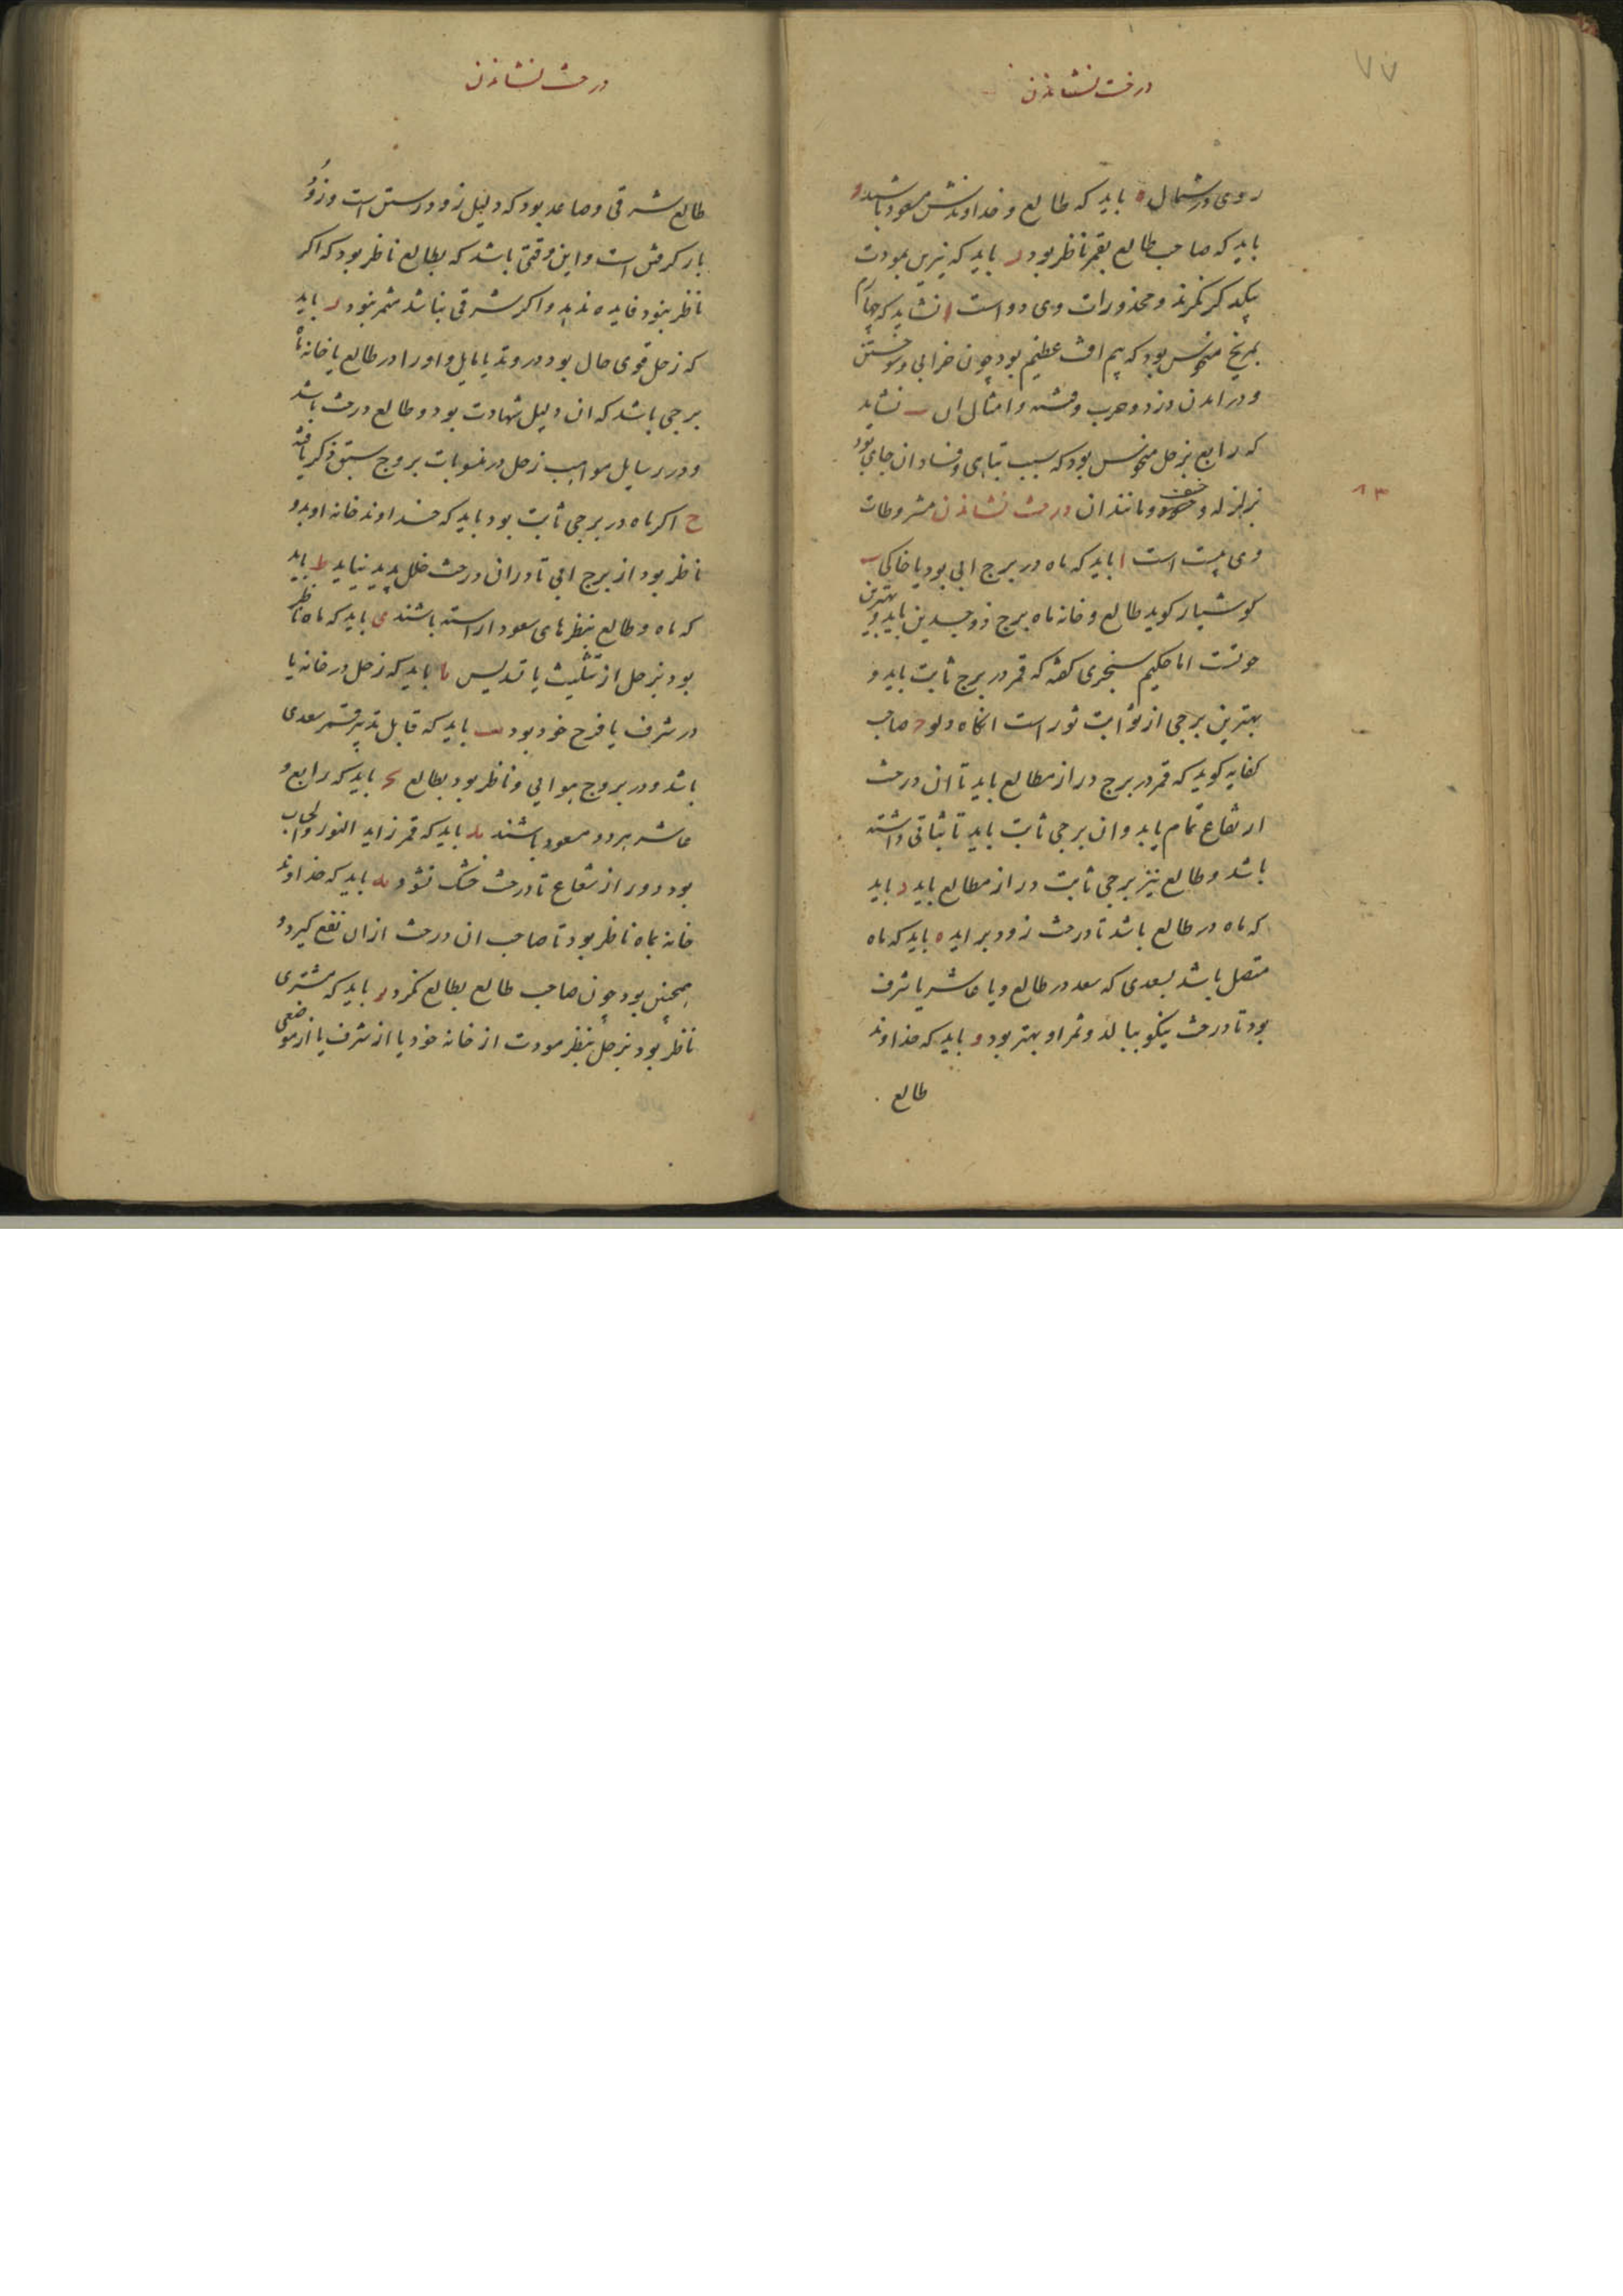 ۷۷
درخت نشاندن
روی در شمال ه باید که طالع و خداوندش مسعود باشد و
باید که صاحب طالع بقمر ناظر بود ر باید که نیرین بمودت
بیکدکر نکرند و محذورات وی دو است ا نشاید که چهارم
بمریخ منحوس بود که بیم افت عظیم بود چون خرابی و سوختن
و درامدن دزد و حرب و فتنه و امثال ان ب نشاید
که رابع بزحل منحوس بود که سبب تباهی و فساد ان جای بود
بزلزله و خسف و مانند ان درخت نشاندن مشروطات
۱۳
وی بیست است ا باید که ماه در برج ابی بود یا خاکی ب
کوشیار کوید طالع و خانه ماه برج ذوجسدین باید و بهترین
حوتست اما حکیم سنجری کفته که قمر در برج ثابت باید و
بهترین برجی از ثوابت ثور است انکاه دلو ج صاحب
کفایه کوید که قمر در برج دراز مطالع باید تا ان درخت
ارتفاع تمام یابد و ان برجی ثابت باید تا ثباتی داشته
باشد و طالع نیز برجی ثابت دراز مطالع باید د باید
که ماه در طالع باشد تا درخت زود براید ه باید که ماه
متصل باشد بسعدی که سعد در طالع و یا عاشر یا شرف
بود تا درخت نیکو ببالد و ثمر او بهتر بود و باید که خداوند
طالع
درخت نشاندن
طالع شرقی و صاعد بود که دلیل زود رستن است و زود
بار کرفتن است و این وقتی باشد که بطالع ناظر بود که اکر
ناظر نبود فایده ندهد و اکر شرقی نباشد مثمر نبود ر باید
که زحل قوی حال بود در وتد یا مایل و او را در طالع یا خانه ماه
برجی باشد که ان دلیل شهادت بود و طالع درخت باشد
و در رسایل مواهب زحل در منسوبات بروج سبق ذکر یافته
ح اکر ماه در برجی ثابت بود باید که خداوند خانه او بدو
ناظر بود از برج ابی تا در ان درخت خلل پدید نیاید ط باید
که ماه و طالع بنظرهای سعود اراسته باشند ی باید که ماه ناظر
بود بزحل از تثلیث یا تسدیس یا باید که زحل در خانه یا
در شرف یا فرح خود بود یب باید که قابل تدبیر قمر سعدی
باشد و در بروج هوایی و ناظر بود بطالع یج باید که رابع و
عاشر هر دو مسعود باشند ید باید که قمر زاید النور والحساب
بود دور از شعاع تا درخت خشک نشود یه باید که خداوند
خانه بماه ناظر بود تا صاحب ان درخت از ان نفع کیرد و
همچنین بود چون صاحب طالع بطالع نکرد یو باید که مشتری
ناظر بود بزحل بنظر مودت از خانه خود یا از شرف یا از موضعی